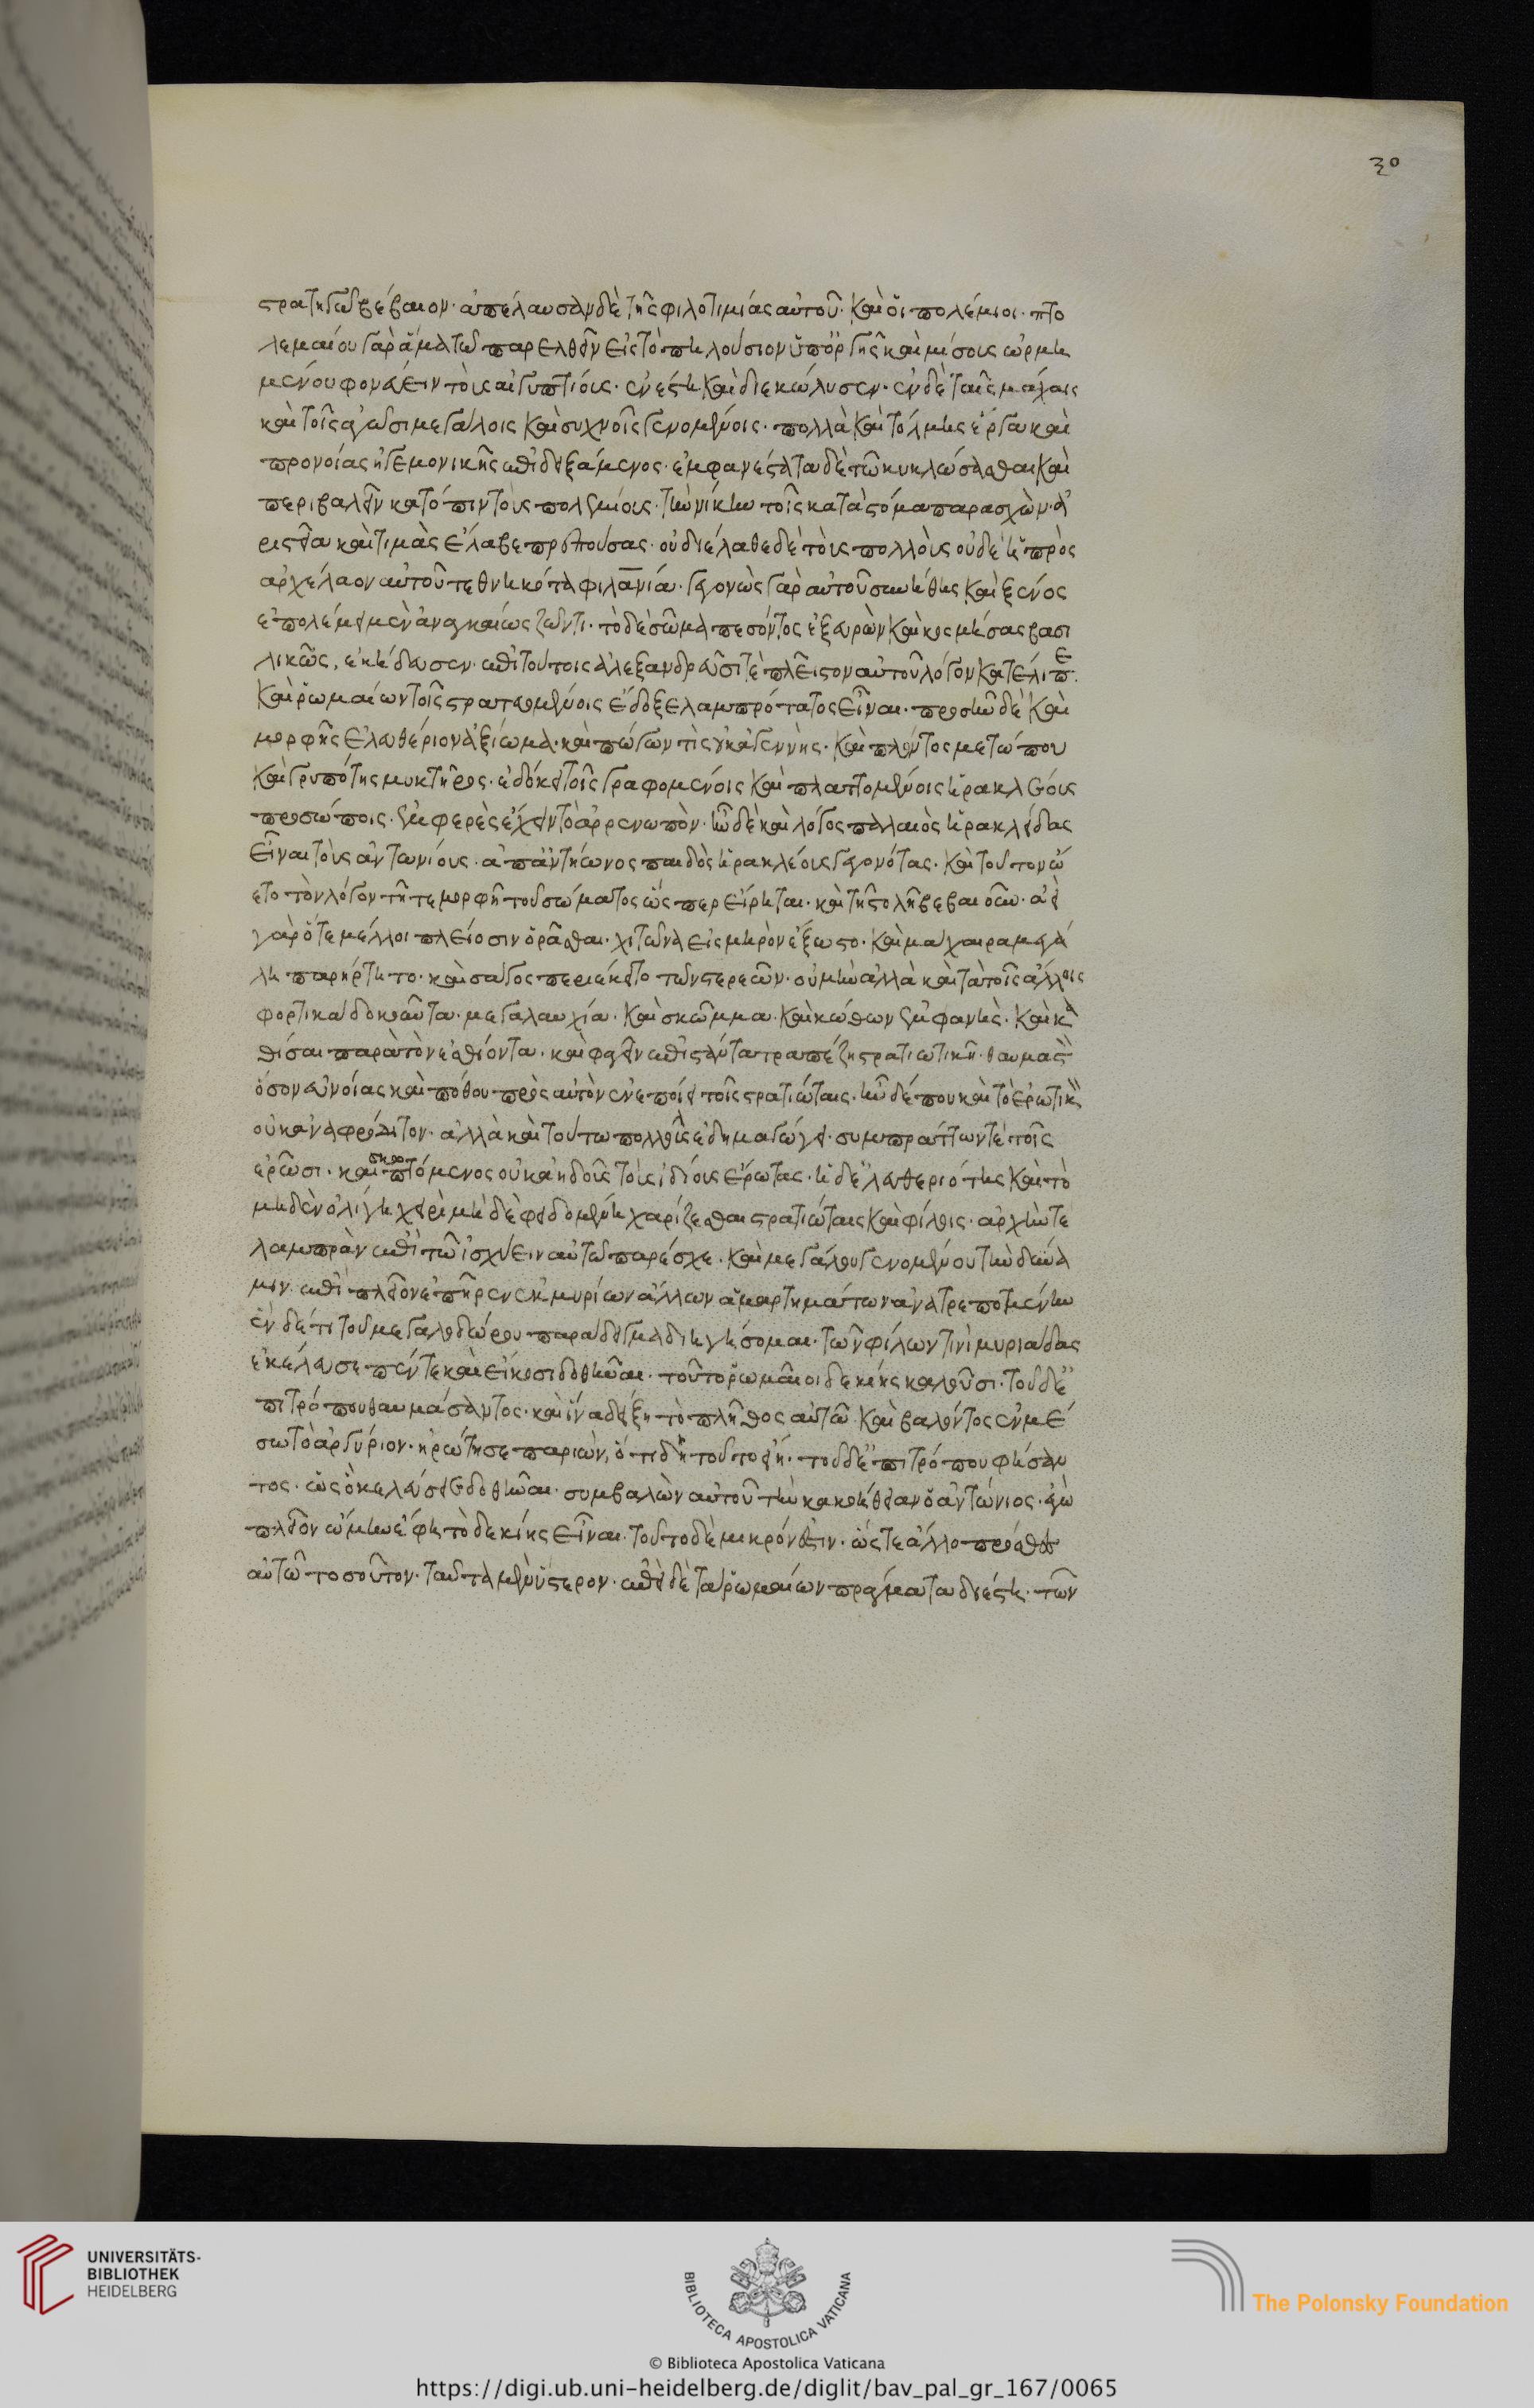 30
στρατηγῶ βέβαιον· ἀπέλαυσαν δὲ τῆς φιλοτιμίας αὐτοῦ· καὶ ὅι πολέμιοι· πτο
λεμαίου γὰρ ἅμα τῶ παρελθεῖν εἰς τὸ πηλούσιον ὑπ' ὀργῆς καὶ μίσους ὡρμη
μένου φονεύειν τοὺς αἰγυπτίους· ἐνέστη καὶ διεκώλυσεν· ἐν δὲ ταῖς μάχαις
καὶ τοῖς ἀγῶσι μεγάλοις καὶ συχνοῖς γενομένοις· πολλὰ καὶ τόλμης ἔργα καὶ
προνοίας ἡγεμονικῆς ἐπιδειξάμενος· ἐμφανέστατα δὲ τῶ κυκλώσασθαι καὶ
περιβαλεῖν κατόπιν τοὺς πολεμίους· τὴν νίκην τοῖς κατὰ στόμα παρασχὼν· ἀ
ριστεῖα καὶ τιμὰς ἔλαβε πρεπούσας· οὐ διέλαθε δὲ τοὺς πολλοὺς οὐδὲ ἡ πρὸς
ἀρχέλαον αὐτοῦ τεθνηκότα φιλανία· γεγονὼς γὰρ αὐτοῦ συνήθης καὶ ξένος
ἐπολέμει μὲν ἀναγκαίως ζῶντι· τὸ δὲ σῶμα πεσόντος ἐξευρὼν καὶ κοσμήσας βασι
λικῶς, ἐκήδευσεν· ἐπὶ τούτοις ἀλεξανδρεῦσί τε πλεῖστον αὐτοῦ λόγον κατέλιπε·
καὶ ῥωμαίων τοῖς στρατευομένοις ἔδοξε λαμπρότατος εἶναι· προσῆν δὲ καὶ
μορφῆς ἐλευθέριον ἀξίωμα· καὶ πώγων τὶς οὐκ ἀγεννὴς· καὶ πλάτος μετώπου
καὶ γρυπότης μυκτῆρος· ἐδόκει τοῖς γραφομένοις καὶ πλαττομένοις ἡρακλέους
προσώποις· ἐμφερὲς ἔχειν τὸ ἀρρενωπὸν· ἦν δὲ καὶ λόγος παλαιὸς ἡρακλείδας
εἶναι τοὺς ἀντωνίους· ἀπ' ἀντήωνος παιδὸς ἡρακλέους γεγονότας· καὶ τοῦτον ὤ
ετο τὸν λόγον τῆ τε μορφῆ τοῦ σώματος ὥσπερ εἴρηται· καὶ τῆ στολῆ βεβαιοῦν· ἀεὶ
γὰρ ὅτε μέλλοι πλείοσιν ὁρᾶσθαι· χιτῶνα εἰς μηρὸν ἔζωστο· καὶ μάχαιρα μεγά
λη παρήρτητο· καὶ σάγος περιέκειτο τῶν στερεῶν· οὐ μὴν ἀλλὰ καὶ τὰ τοῖς ἄλλοις
φορτικὰ δοκοῦντα· μεγαλαυχία· καὶ σκῶμμα· καὶ κώθων ἐμφανὴς· καὶ κα
θίσαι παρὰ τὸν ἐσθίοντα· καὶ φαγεῖν ἐπιστάντα τραπέζη στρατιωτικῆ· θαυμαστὸν
ὅσον εὐνοίας καὶ πόθου πρὸς αὐτὸν ἐνεποίει τοῖς στρατιώταις· ἦν δέ που καὶ τὸ ἐρωτικὸν
οὐκ ἀναφρόδιτον· ἀλλὰ καὶ τούτω πολλοὺς ἐδημαγώγει· συμπράττων τὲ τοῖς
ἐρῶσι· καὶ σκωπτόμενος οὐκ ἀηδῶς τοὺς ἰδίους ἔρωτας· ἡ δ' ἐλευθεριότης καὶ τὸ
μηδὲν ὀλίγη χειρὶ μὴ δὲ φειδομένη χαρίζεσθαι στρατιώταις καὶ φίλοις· ἀρχήν τε
λαμπρὰν ἐπὶ τῶ ἰσχύειν αὐτῶ παρέσχε· καὶ μεγάλου γενομένου τὴν δύνα
μιν· ἐπὶ πλεῖον ἐπῆρεν ἐκ μυρίων ἄλλων ἁμαρτημάτων ἀνατρεπομένην
ἓν δέ τι τοῦ μεγαλοδώρου παράδειγμα διηγήσομαι· τῶν φίλων τινὶ μυριάδας
ἐκέλευσε πέντε καὶ εἴκοσι δοθῆναι· τοῦτο ῥωμαῖοι δεκίης καλοῦσι· τοῦ δ' ἐ
πιτρόπου θαυμάσαντος· καὶ ἵνα δείξη τὸ πλῆθος αὐτῶ καὶ βαλόντος ἐν μέ
σω τὸ ἀργύριον· ἠρώτησε παριὼν, ὅ τι δὴ τοῦτο εἴη· τοῦ δ' ἐπιτρόπου φήσαν
τος· ὡς ὃ κελεύσει δοθῆναι· συμβαλὼν αὐτοῦ τὴν κακοήθειαν ὁ ἀντώνιος· ἐγὼ
πλεῖον ᾤμην ἔφη τὸ δεκίης εἶναι· τοῦτο δὲ μικρόν ἐστιν· ὥστε ἄλλο πρόσθες
αὐτῶ τοσοῦτον· ταῦτα μὲν ὕστερον· ἐπεὶ δὲ τὰ ῥωμαίων πράγματα διέστη· τῶν
UNIVERSITÄTS-
BIBLIOTHEK
HEIDELBERG
BIBLIOTECA APOSTOLICA VATICANA
The Polonsky Foundation
© Biblioteca Apostolica Vaticana
https://digi.ub.uni-heidelberg.de/diglit/bav_pal_gr_167/0065